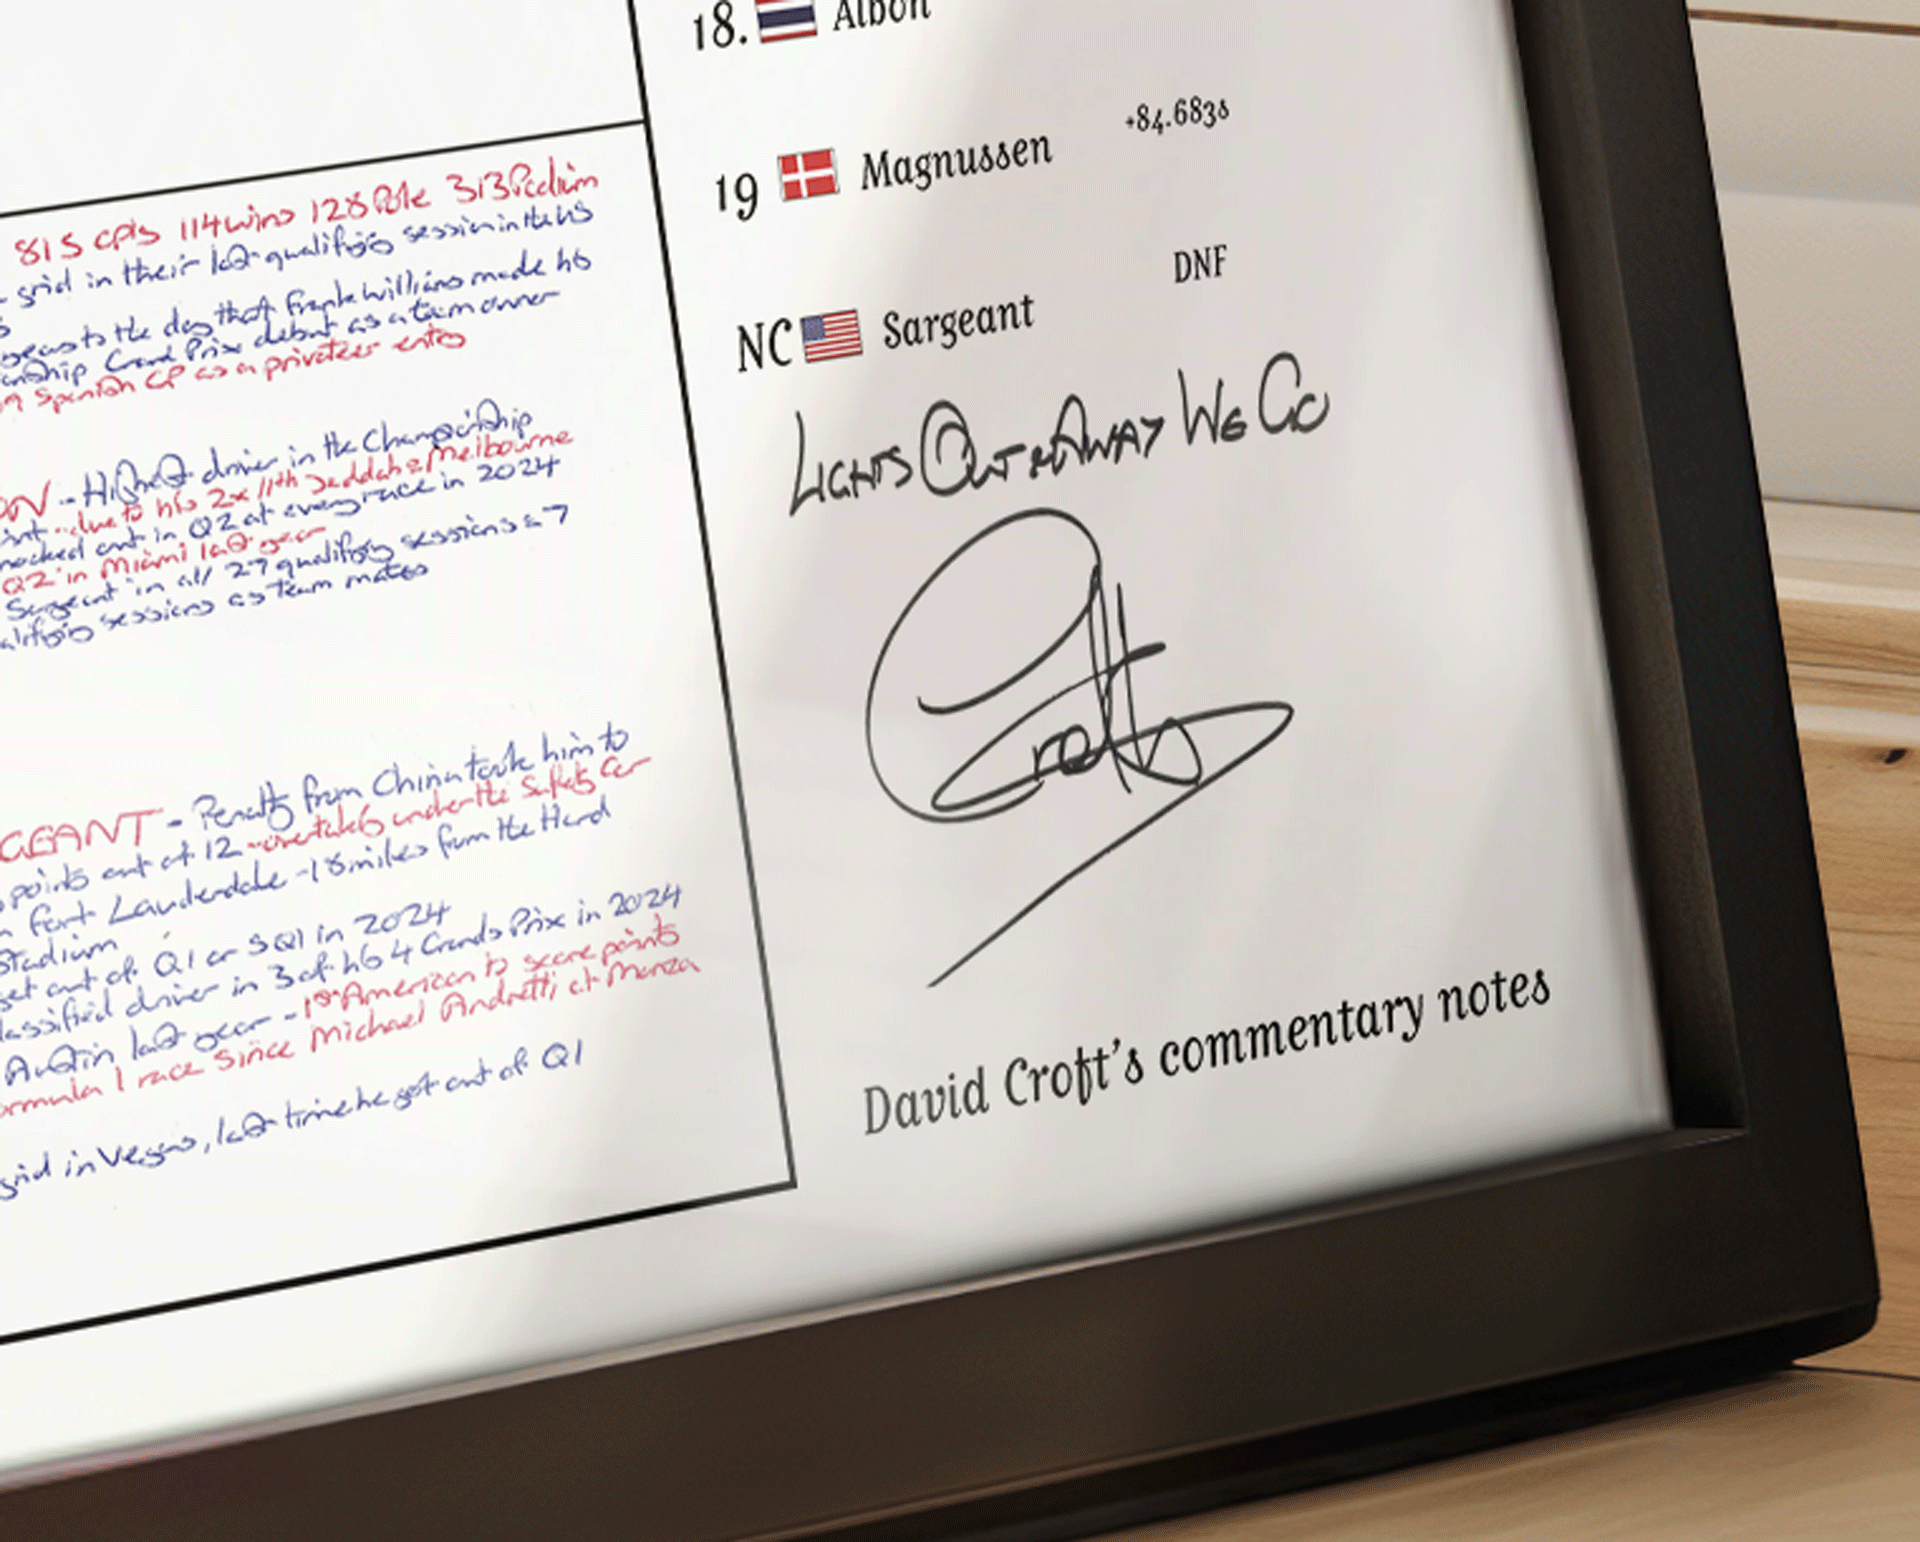 815 GPs 114 wins 128 Pole 313 Podium
grid in their last qualifying session in the US
years to the day that Frank Williams made his
Grand Prix debut as a team owner
Spanish GP as a privateer entry
ON - Highest driver in the Championship
due to his 2x 11th Jeddah & Melbourne
knocked out in Q2 at every race in 2024
Q2 in Miami last year
Sargeant in all 27 qualifying sessions = 7
qualifying sessions as team mates
GEANT - Penalty from China took him to
points out of 12 - overtaking under the Safety Car
Fort Lauderdale - 18 miles from the Hard
Stadium
get out of Q1 or SQ1 in 2024
classified driver in 3 of his 4 Grands Prix in 2024
Austin last year - 1st American to score points
Formula 1 race since Michael Andretti at Monza
grid in Vegas, last time he got out of Q1
18. Albon
+84.683s
19 Magnussen
DNF
NC Sargeant
LIGHTS OUT & AWAY WE GO
Croft
David Croft's commentary notes